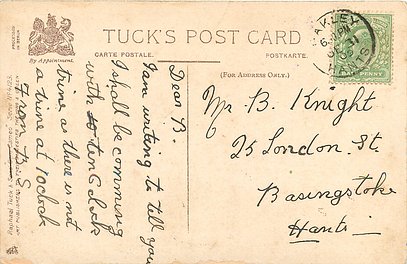 TUCK'S POST CARD
CARTE POSTALE.
POSTKARTE.
(FOR ADDRESS ONLY.)
By Appointment.
OAKLEY
HANTS
PENNY
Dear B.
I am writing to tell you
I shall be comming
with 10 ten O clock
trine as there is not
a trine at 1 oclock
From B S
Mr B. Knight
25 London. St
Basingstoke
Hants
Raphael Tuck &